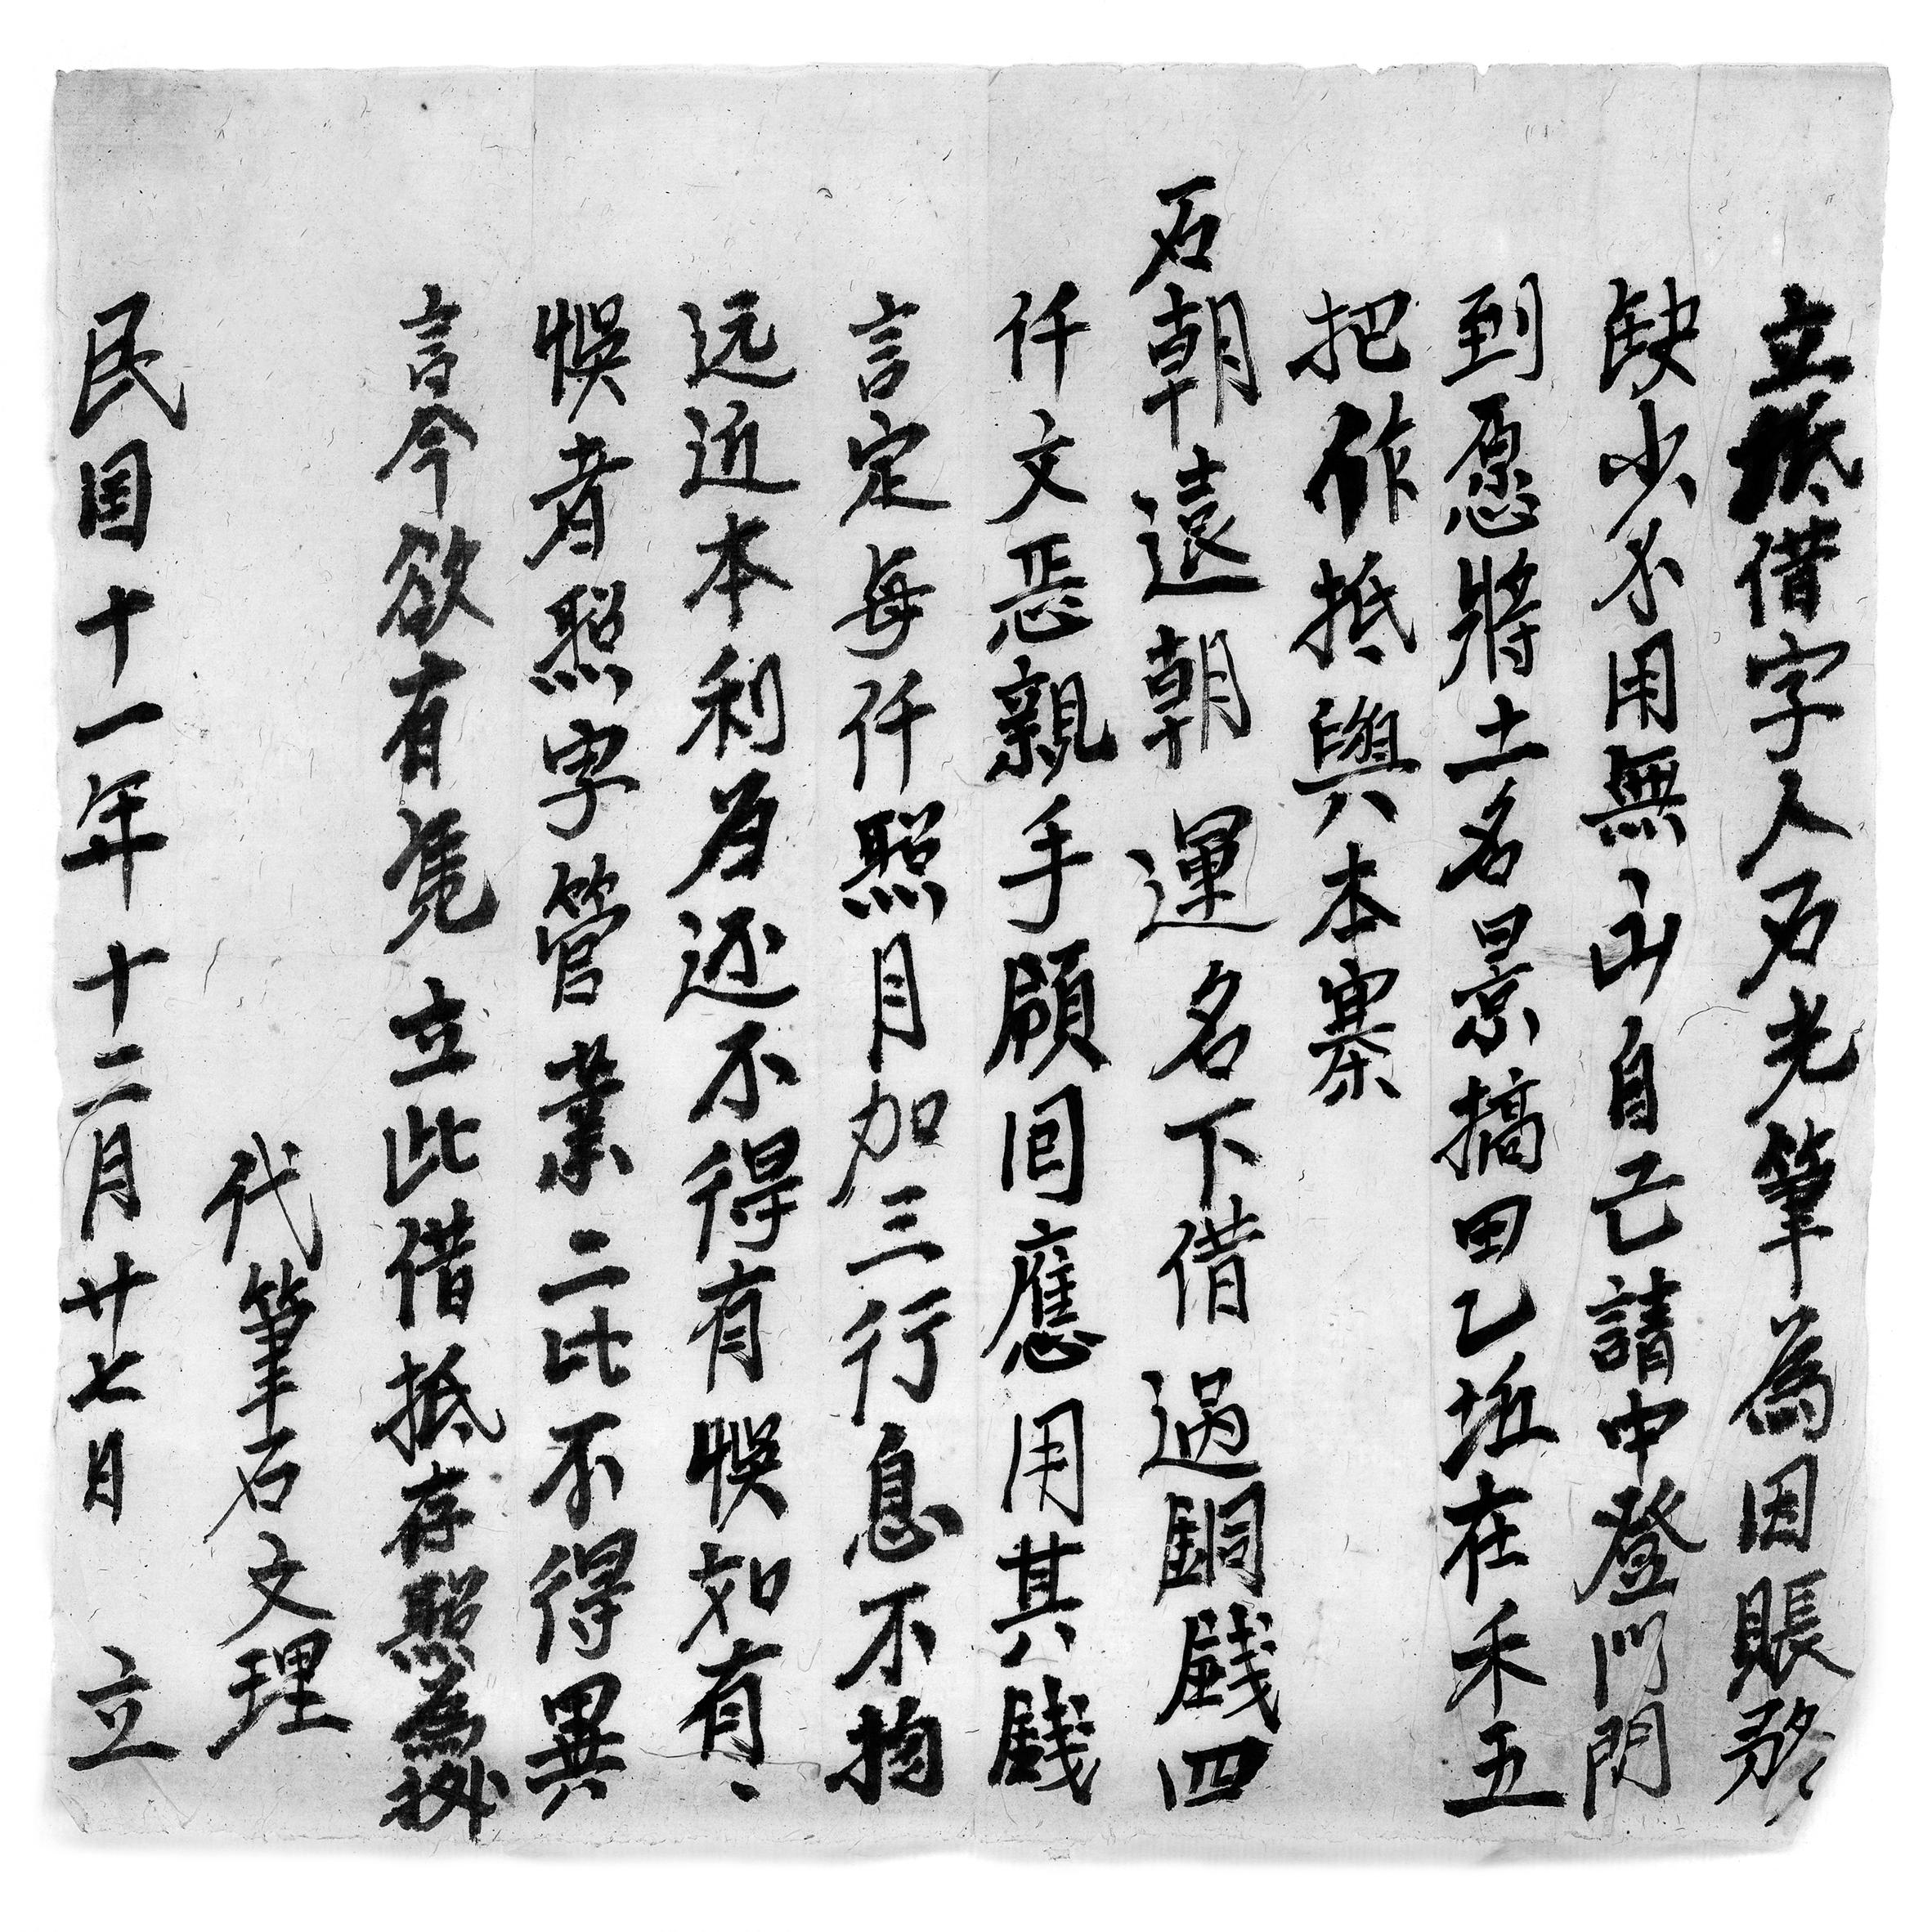 立抵借字人石光筆為因賬務
缺少不用無山自己請中登門門
到愿將土名景搞田乙坵在禾五
把作抵與本寨
石朝遠朝運名下借過銅錢四
仟文恁親手領囬應用其錢
言定每仟照月加三行息不拘
远近本利为还不得有悮如有
悮者照字管業二比不得異
言今欲有凴立此借抵存照為
代筆石文理
民囯十一年十二月廿七日立